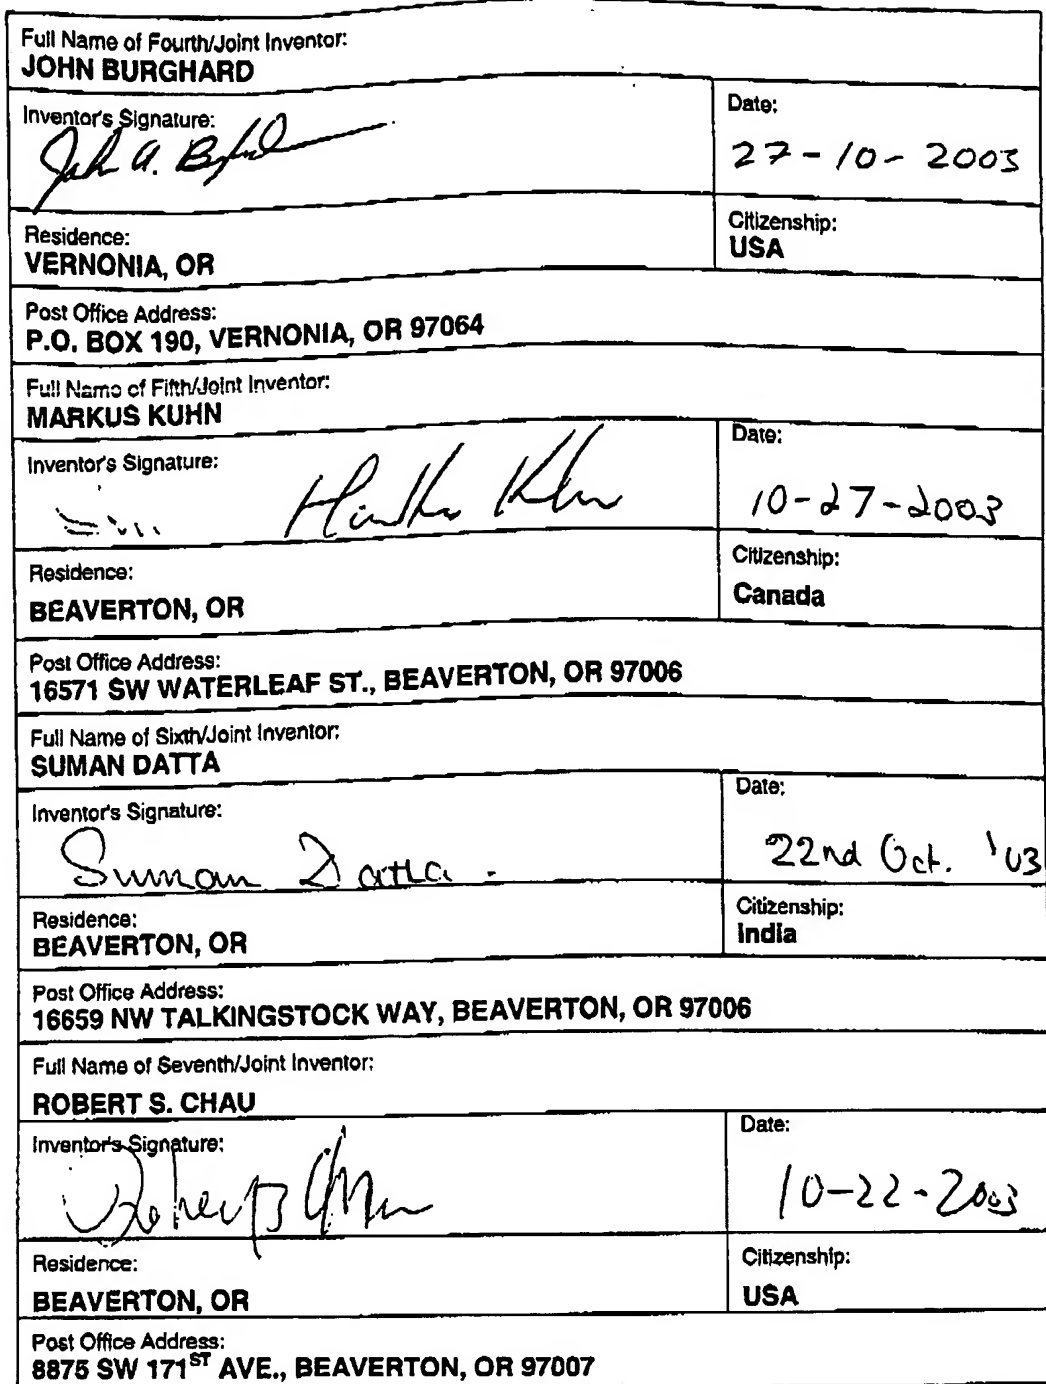 Full Name of Fourth/Joint Inventor:
JOHN BURGHARD
Inventor's Signature:
John A. Burghard
Date:
27-10-2003
Residence:
VERNONIA, OR
Citizenship:
USA
Post Office Address:
P.O. BOX 190, VERNONIA, OR 97064
Full Name of Fifth/Joint Inventor:
MARKUS KUHN
Inventor's Signature:
Markus Kuhn
Date:
10-27-2003
Residence:
BEAVERTON, OR
Citizenship:
Canada
Post Office Address:
16571 SW WATERLEAF ST., BEAVERTON, OR 97006
Full Name of Sixth/Joint Inventor:
SUMAN DATTA
Inventor's Signature:
Suman Datta.
Date:
22nd Oct. '03
Residence:
BEAVERTON, OR
Citizenship:
India
Post Office Address:
16659 NW TALKINGSTOCK WAY, BEAVERTON, OR 97006
Full Name of Seventh/Joint Inventor:
ROBERT S. CHAU
Inventor's Signature:
Robert S Chau
Date:
10-22-2003
Residence:
BEAVERTON, OR
Citizenship:
USA
Post Office Address:
8875 SW 171ST AVE., BEAVERTON, OR 97007